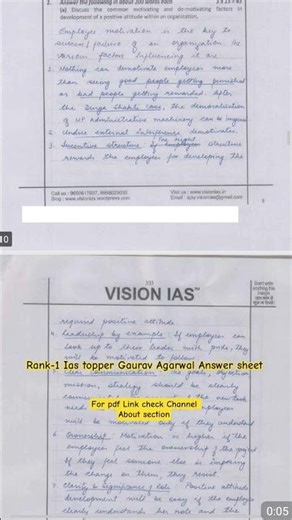 2. Answer the following in about 200 words each
(a) Discuss the common motivating and de-motivating factors in
development of a positive attitude within an organization.
Employee motivation is the key to
success/failure of an organization i.e.
various factors influencing it are
1. Nothing can demotivate employees more
than seeing good people getting punished
or bad people getting rewarded. After
the Durga Shakti case, the demoralisation
of UP administrative machinery can be
2. Undue external interference demotivates.
3. Incentive structure the right structure
rewards the employees for developing the
Visit us : www.visionias.in
10
VISION IAS™
required positive attitude
4. Leadership by example: If employees can
look up to their leader with pride, they
will be motivated to follow
Rank-1 Ias topper Gaurav Agarwal Answer sheet
mission, strategy should be clearly
For pdf Link check Channel
About section
will be motivated only if they understand
6. Ownership: Motivation is higher if the
employees feel the ownership of the project
If they feel someone else is imposing
the change on them, they resist.
7. Clarity & significance of role: Positive attitude
development will be easy if the employee
clearly understands her role and the
0:05